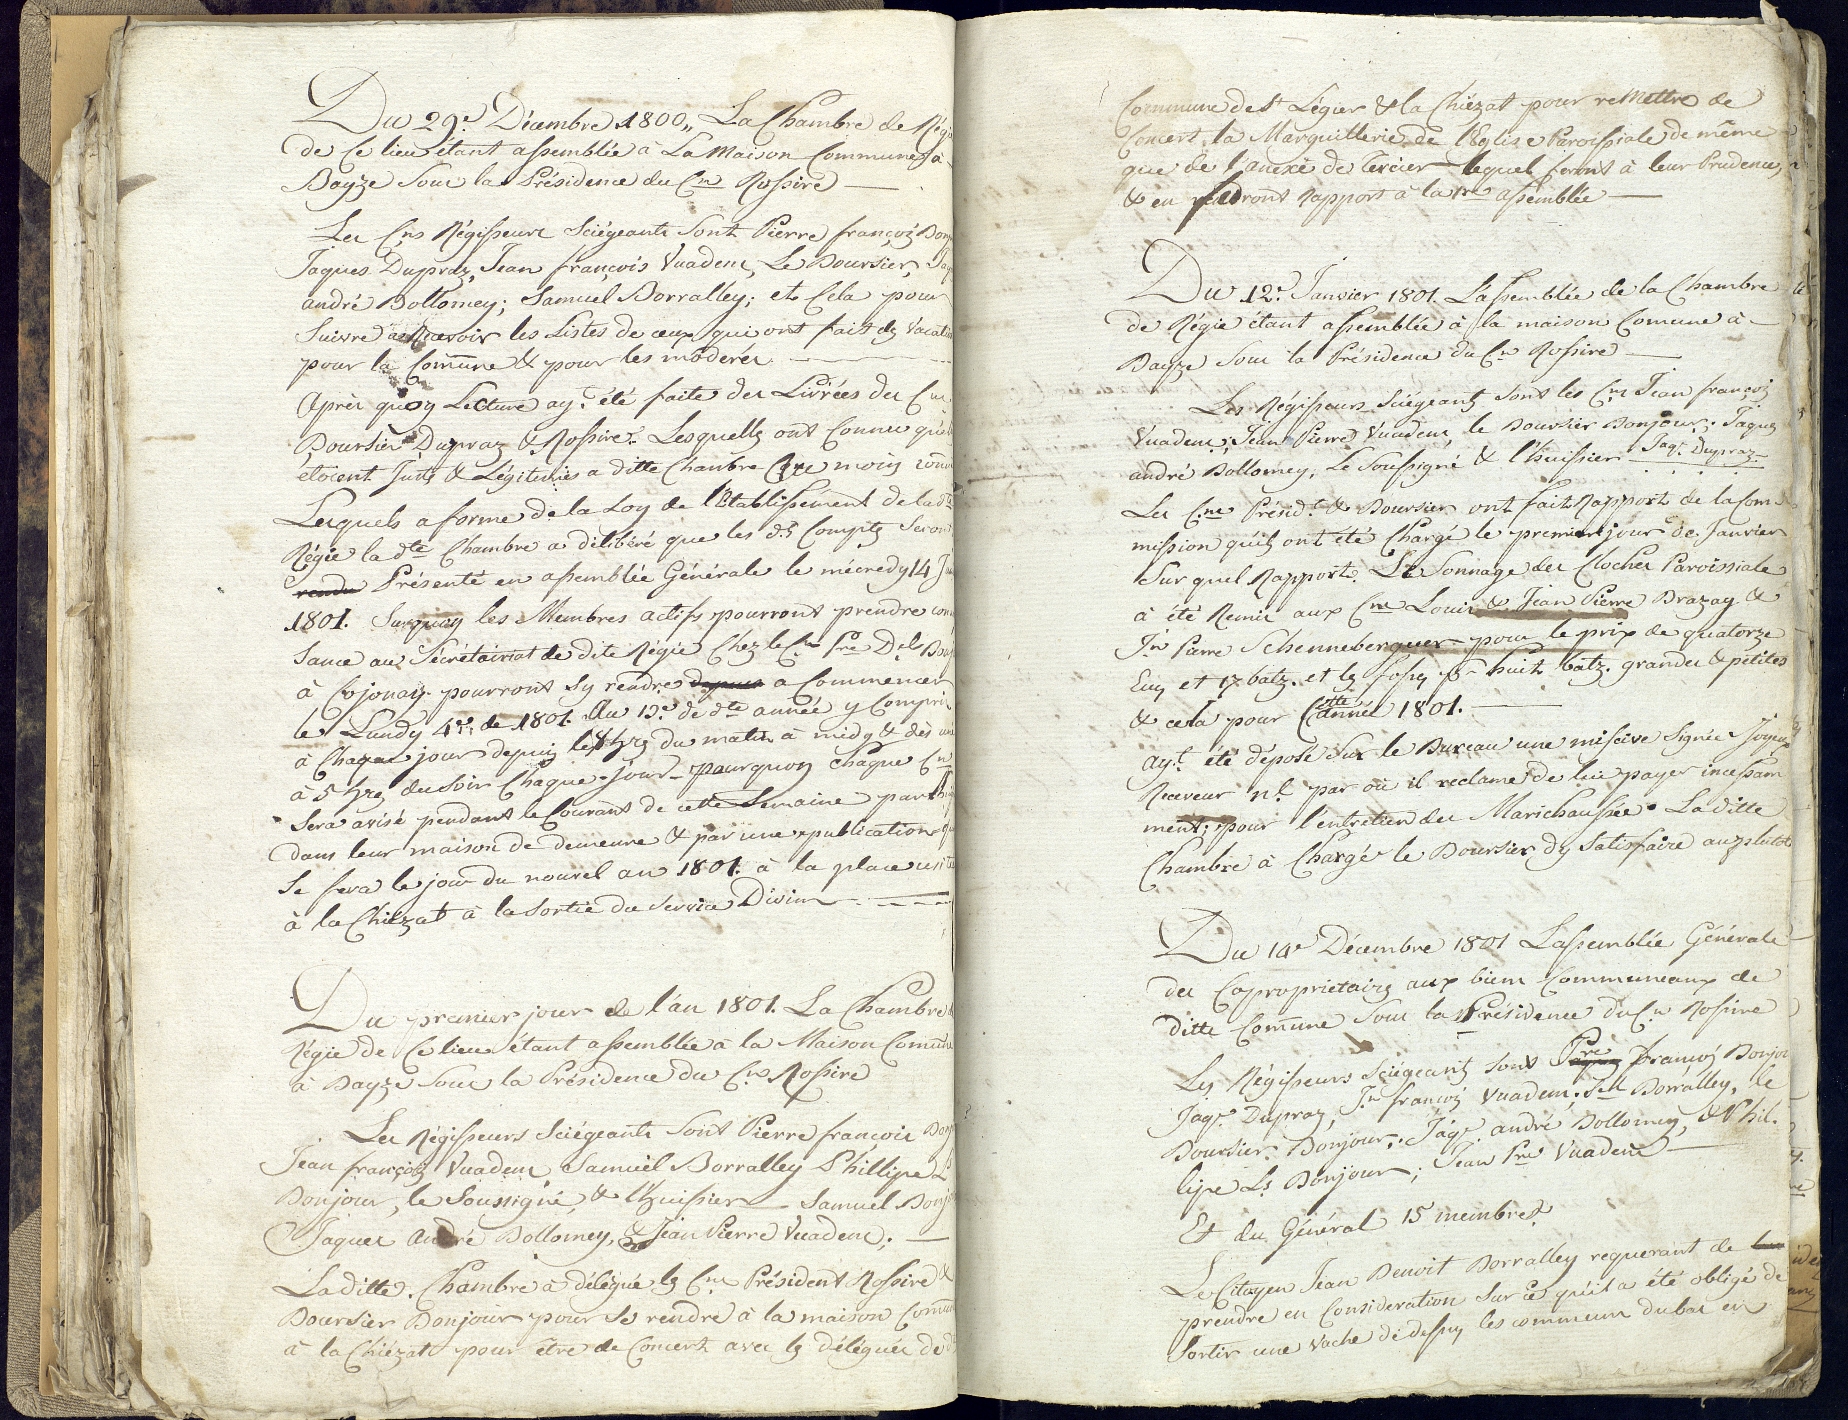 Du 29.e Décembre 1800,, La Chambre de Régie
de Ce lieu étant assemblée à La Maison Commune à
Bayze Sous la Présidence du Cn Rossire
Les Cns Régisseurs Sciégeants Sont Pierre françois Bonj
Jaques Dupraz, Jean françois Vuadens, Le Boursier, Jaq
andré Dollomey; Samuel Borralley; et Cela pour
Suivre a Recevoir les Listes de ceux qui ont fait des Vacatio
pour la Com̄une & pour les modérer
Après quoy Lecture ay.t été faite des Livrées des Cns
Boursier Dupraz & Rossire. Lesquells ont Connu quel
étoient Juste & Légitimes a ditte Chambre
Lesquels a forme de la Loy de l'Etablissement de la dte
Régie la dte Chambre a délibéré que les dts Compts Seront
rendu Présenté en assemblée Générale le mécredy 14 J
1801. Surquoy les Membres actifs pourront prendre conn
Sance au Sécrétairiat de dite Régie Chez le Cn Pre Del Bonj
à Cojonay pourront Sy rendre depuis a Commencer
le Lundy 4.e de 1801. Au 13.e de dte année y Compris
à Chaque jour depuis les 8 hres du matin à midy & dès une
à 5 hres du Soir Chaque Jour - pourquoy chaque Cn
Sera avisé pendant le Courant de cette Semaine par
dans leur maison de demeure & par une publication qui
Se fera le jour du nouvel an 1801. à la place usité
à la Chiézat à la Sortie du Service Divin
Du premier jour de l'an 1801. La Chambre d
Régie de Ce lieu étant assemblée à la Maison Com̄une
à Bayze Sous la Présidence du Cn Rossire
Les Régisseurs Sciégeants Sont Pierre françois Bonj
Jean françois Vuadens Samuel Borralley Phillipe Ls
Bonjour, le Soussigné, & l'huissier Samuel Bonj
Jaques André Dollomey, & Jean Pierre Vuadens;
La ditte. Chambre à délégué les Cns Président Rossire &
Boursier Bonjour pour Se rendre à la maison Com̄une
à la Chiézat pour être de Concert avec les délégués de d
Commune de St Légier & la Chiézat pour reMettre de
Concert, la Marguillerie de l'Eglise Paroissiale de même
que de l'anexe de Cercier lequel feront à leur Prudence,
& en rendront Rapport à la 1re assemblée
Du 12.e Janvier 1801. L'assemblée de la Chambre
de Régie étant assemblée à la maison Comune à
Bayze Sous la Présidence du Cn Rossire
Les Régisseurs Sciégeants Sont les Cns Jean françois
Vuadens; Jean Pierre Vuadens, le Boursier Bonjour; Jaques
andré Dollomey, Le Soussigné & l'huissier Jaqs Dupraz
Les Cns Présidt & Boursier ont fait Rapport de la Com-
mission quils ont été Chargé le premier jour de Janvier
Sur quel Rapport. Le Sonnage des Cloches Paroissiale
à été Remis aux Cns Louis & Jean Pierre Brazay &
Jn Pierre Schenneberguer pour le prix de quatorze
Ecus et 17 batz. et les fosses huit batz. grandes & petites
& cela pour Cette année 1801.
ay.t été déposé Sur le Bureau une missive Signée Joyeux
Receveur nl par où il reclame de lui payer incessam
ment; pour l'entretien des Marichaussée La ditte
Chambre à Chargé le Boursier dy Satisfaire au plutôt
Du 14e Décembre 1801 L'assemblée Générale
des Copropriétaires aux biens Communeaux de
ditte Comune Sous la Présidence du Cn Rossire
Les Régisseurs Sciégeants Sont Pre françois Bonjou
Jaqs Dupraz, Jn françois Vuadens; Sel Borralley, le
Boursier Bonjour; Jaqs andré Dollomey, & Phil-
lipe Ls Bonjour; Jean Pre Vuadens
Et du Général 15 membres.
Le Citoyen Jean Benoit Borralley requerant de
prendre en Consideration Sur ce qu'il a été obligé de
Sortir une vache de dessus les communs du bas en